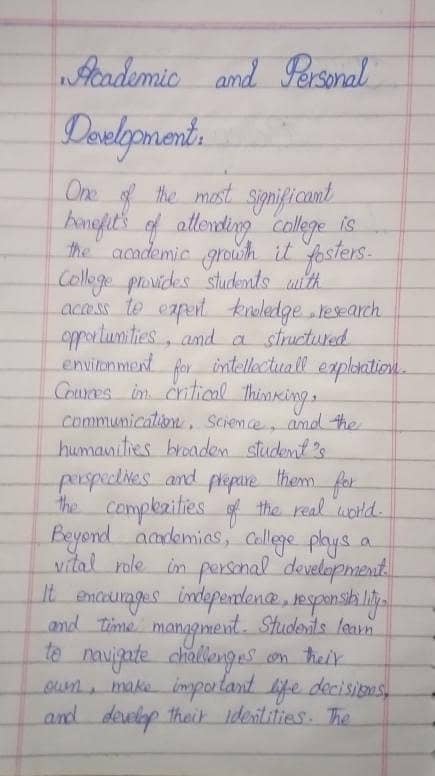 Academic and Personal
Development:
One of the most significant
benefit's of attending college is
the academic growth it fosters.
College provides students with
access to expert knoledge, research
opportunities, and a structured
environment for intellectuall exploration.
Cources in critical thinking,
communication, science, and the
humanities broaden student's
perspectives and prepare them for
the complexities of the real world.
Beyond academics, college plays a
vital role in personal development.
It encourages independence, responsibility,
and time managment. Students learn
to navigate challenges on their
own, make important life decisions,
and develop their identities. The